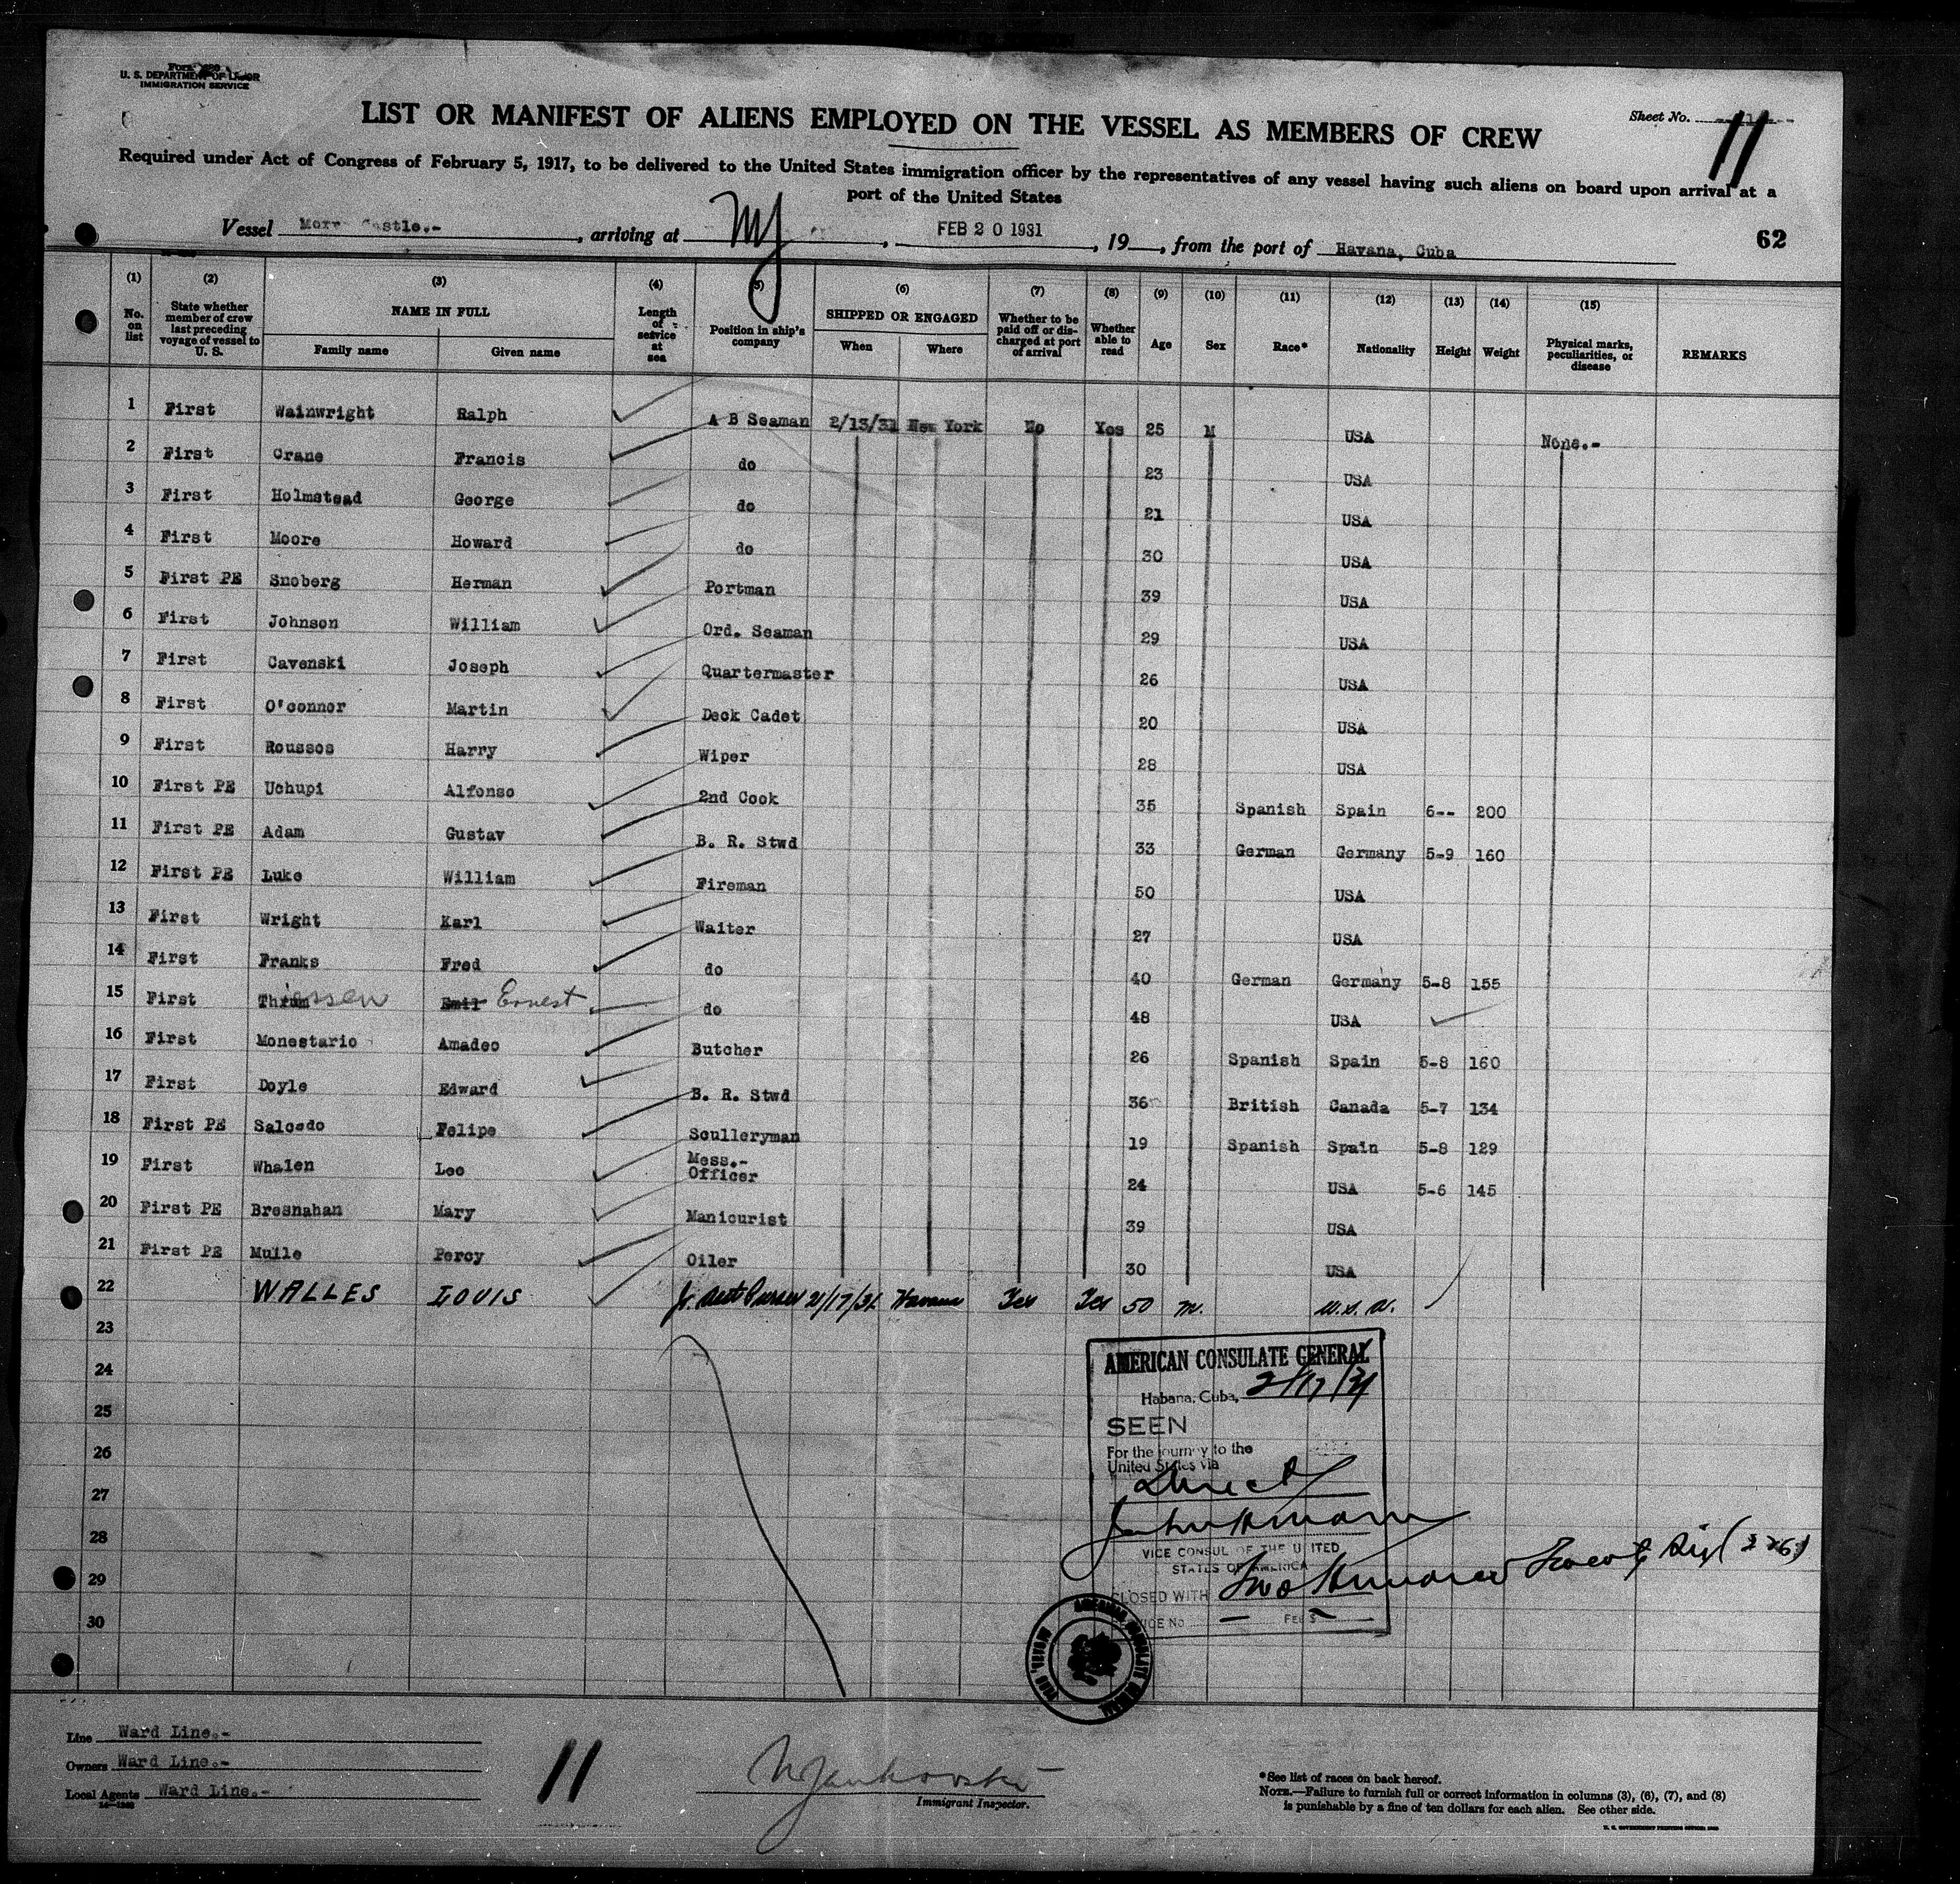 Form 680
U. S. DEPARTMENT OF LABOR
IMMIGRATION SERVICE
Sheet No. 1
11
LIST OR MANIFEST OF ALIENS EMPLOYED ON THE VESSEL AS MEMBERS OF CREW
Required under Act of Congress of February 5, 1917, to be delivered to the United States immigration officer by the representatives of any vessel having such aliens on board upon arrival at a
port of the United States
Vessel Morr Castle.- , arriving at NY , FEB 20 1931 , 19 , from the port of Havana, Cuba
62
(1) (2) (3) (4) (5) (6) (7) (8) (9) (10) (11) (12) (13) (14) (15)
No. on list State whether member of crew last preceding voyage of vessel to U. S. NAME IN FULL Family name Given name Length of service at sea Position in ship's company SHIPPED OR ENGAGED When Where Whether to be paid off or discharged at port of arrival Whether able to read Age Sex Race* Nationality Height Weight Physical marks, peculiarities, or disease REMARKS
1 First Wainwright Ralph A B Seaman 2/13/31 New York No Yes 25 M USA None.-
2 First Crane Francis do 23 USA
3 First Holmstead George do 21 USA
4 First Moore Howard do 30 USA
5 First PE Snoberg Herman Portman 39 USA
6 First Johnson William Ord. Seaman 29 USA
7 First Cavenski Joseph Quartermaster 26 USA
8 First O'connor Martin Deck Cadet 20 USA
9 First Roussos Harry Wiper 28 USA
10 First PE Uchupi Alfonso 2nd Cook 35 Spanish Spain 6-- 200
11 First PE Adam Gustav B. R. Stwd 33 German Germany 5-9 160
12 First PE Luke William Fireman 50 USA
13 First Wright Karl Waiter 27 USA
14 First Franks Fred do 40 German Germany 5-8 155
15 First Emil Ernest do 48 USA
16 First Monestario Amadeo Butcher 26 Spanish Spain 5-8 160
17 First Doyle Edward B. R. Stwd 36 British Canada 5-7 134
18 First PE Salcedo Felipe Sculleryman 19 Spanish Spain 5-8 129
19 First Whalen Leo Mess.- Officer 24 USA 5-6 145
20 First PE Bresnahan Mary Manicurist 39 USA
21 First PE Muile Percy Oiler 30 USA
22 WALLES LOUIS Jr. Asst Purser 2/17/31 Havana Yes Yes 50 m. U.S.A.
23
24
25
26
27
28
29
30
AMERICAN CONSULATE GENERAL
Habana, Cuba, 2/17/31
SEEN
For the journey to the
United States via
Direct
VICE CONSUL OF THE UNITED
STATES OF AMERICA
CLOSED WITH Two Hundred Twenty Six (226)
SERVICE No. FEE $
Line Ward Line.-
Owners Ward Line.-
Local Agents Ward Line.-
11
Immigrant Inspector.
*See list of races on back hereof.
NOTE.—Failure to furnish full or correct information in columns (3), (6), (7), and (8)
is punishable by a fine of ten dollars for each alien. See other side.
U. S. GOVERNMENT PRINTING OFFICE